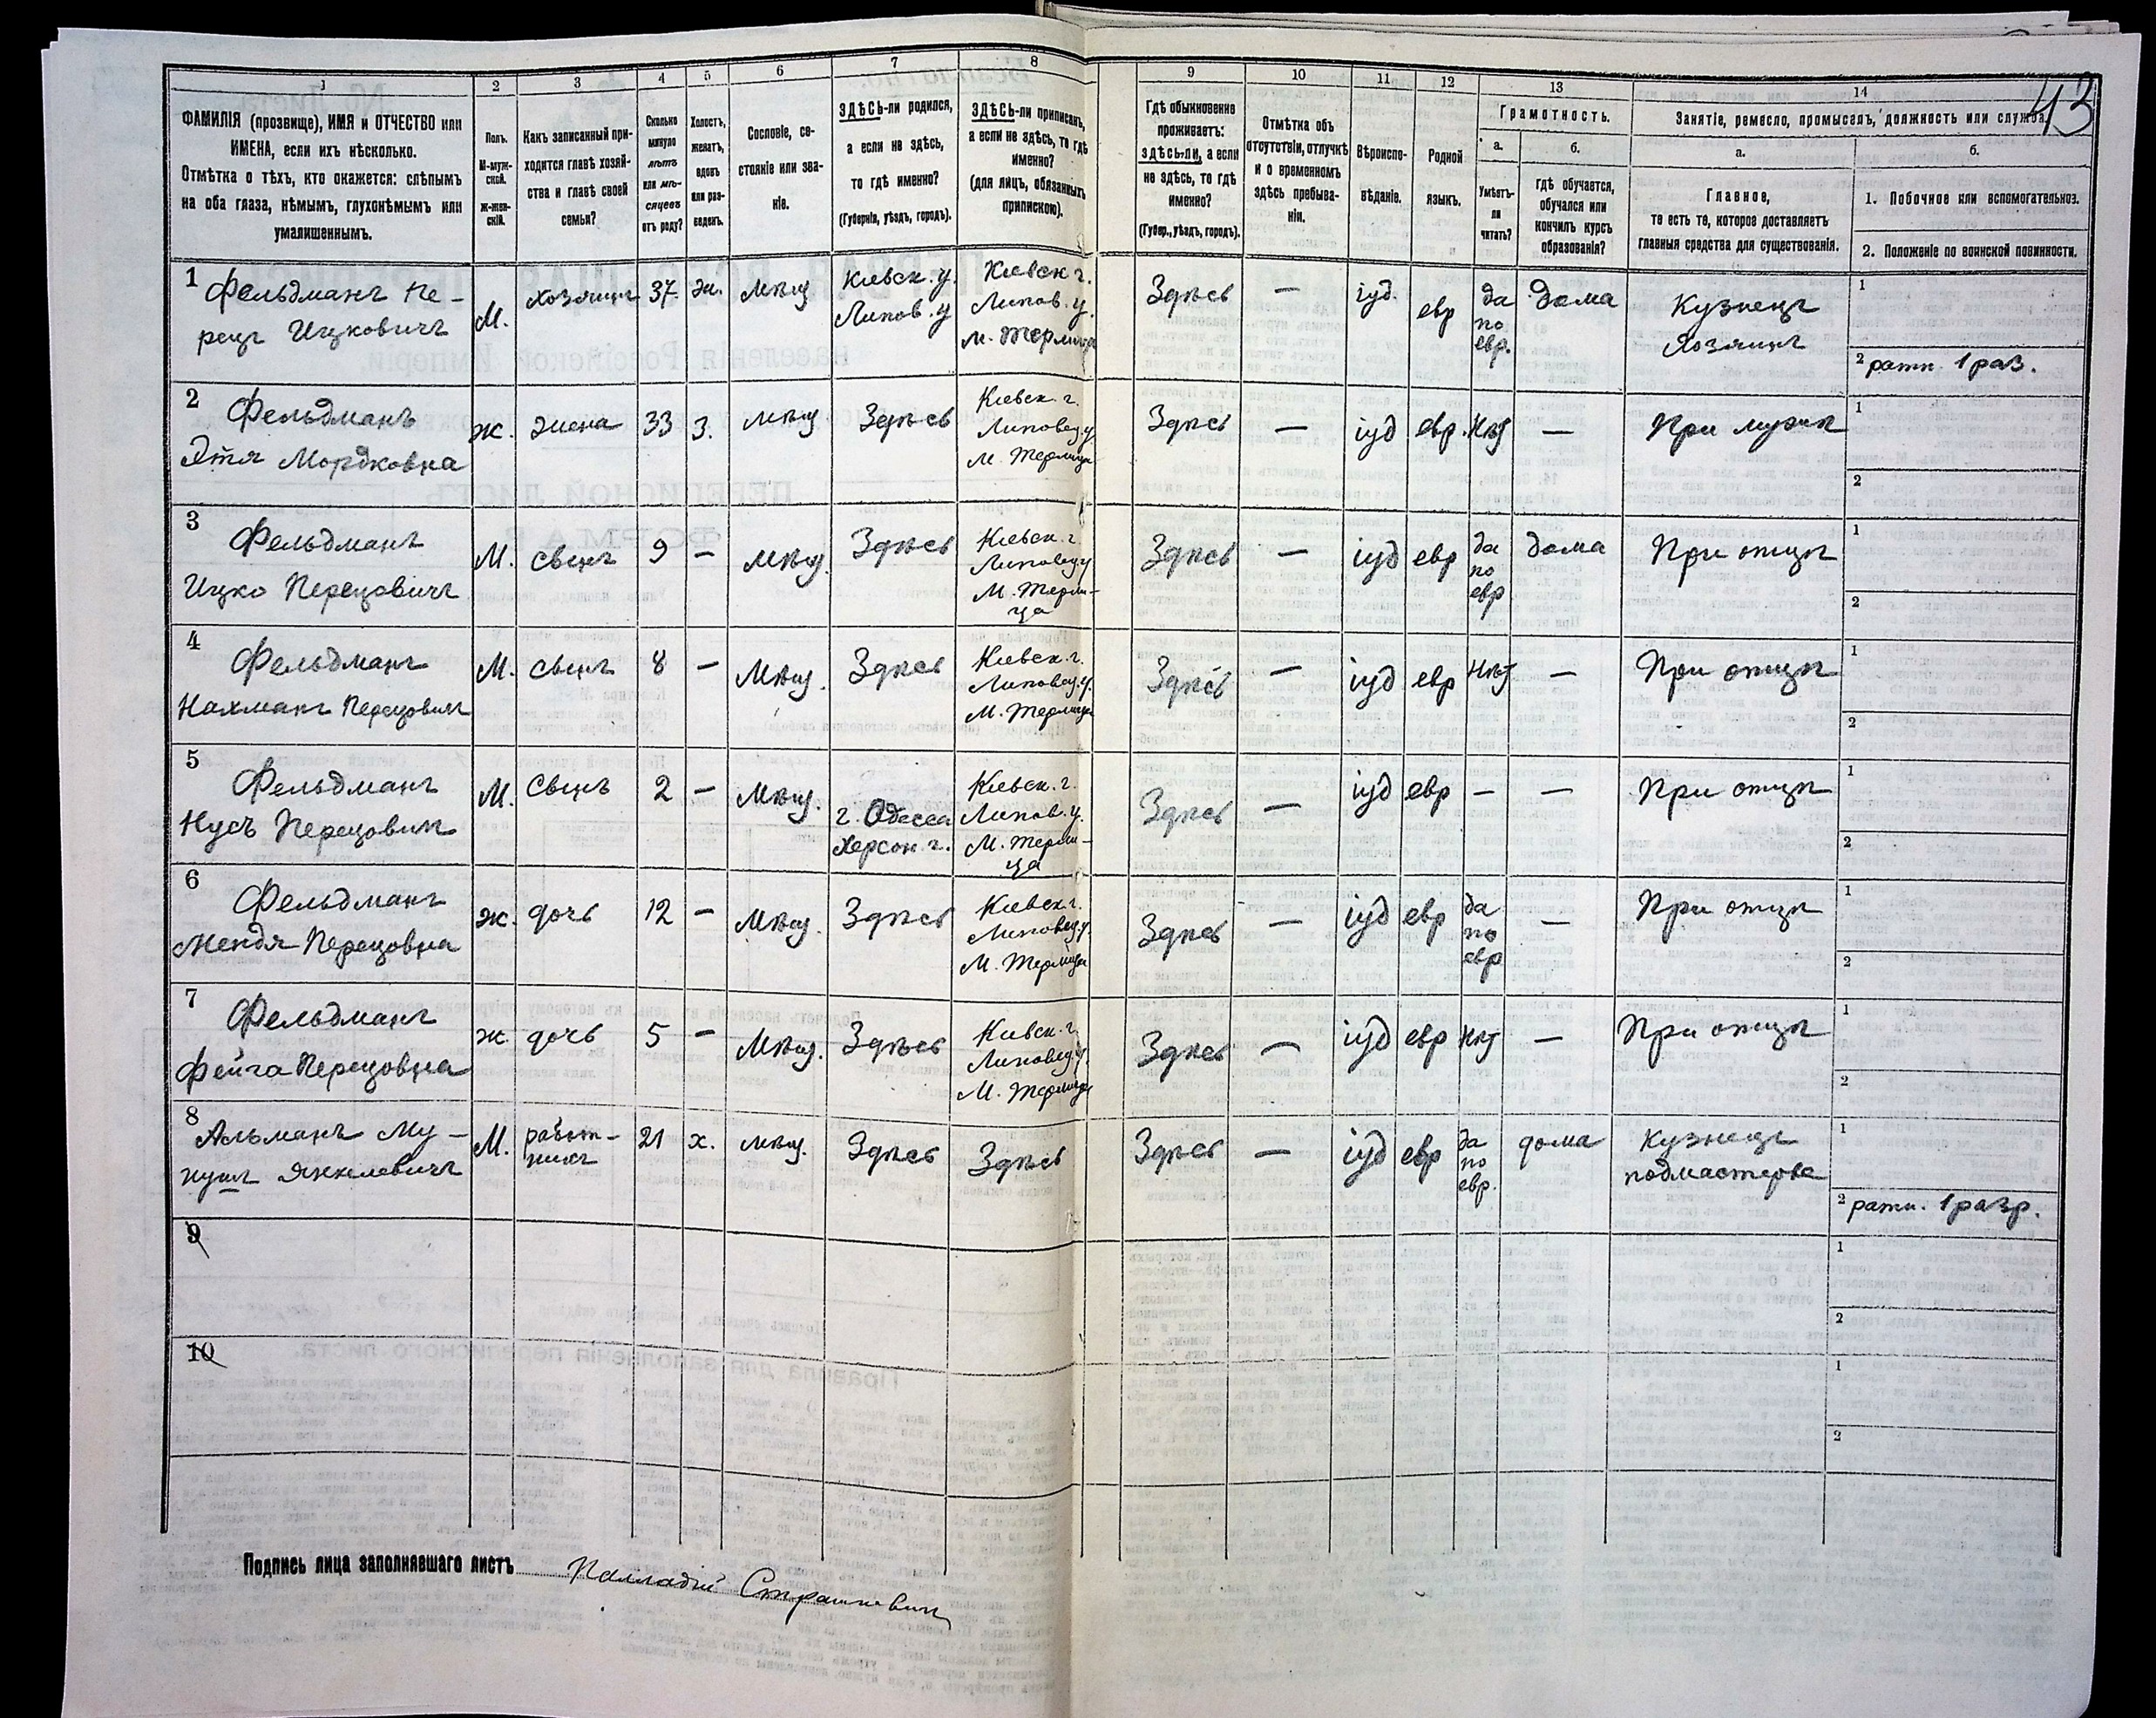 43
1 2 3 4 5 6 7 8 9 10 11 12 13 14
ФАМИЛІЯ (прозвище), ИМЯ и ОТЧЕСТВО или
ИМЕНА, если ихъ нѣсколько.
Отмѣтка о тѣхъ, кто окажется: слѣпымъ
на оба глаза, нѣмымъ, глухонѣмымъ или
умалишеннымъ.
Полъ.
М-муж-
ской.
ж-жен-
скій.
Какъ записанный при-
ходится главѣ хозяй-
ства и главѣ своей
семьи?
Сколько
минуло
лѣтъ
или мѣ-
сяцевъ
отъ роду?
Холостъ,
женатъ,
вдовъ
или раз-
веденъ.
Сословіе, со-
стояніе или зва-
ніе.
ЗДѢСЬ-ли родился,
а если не здѣсь,
то гдѣ именно?
(Губернія, уѣздъ, городъ).
ЗДѢСЬ-ли приписанъ,
а если не здѣсь, то гдѣ
именно?
(для лицъ, обязанныхъ
припискою).
Гдѣ обыкновенно
проживаетъ:
ЗДѢСЬ-ЛИ, а если
не здѣсь, то гдѣ
именно?
(Губер., уѣздъ, городъ).
Отмѣтка объ
отсутствіи, отлучкѣ
и о временномъ
здѣсь пребыва-
ніи.
Вѣроиспо-
вѣданіе.
Родной
языкъ.
Грамотность.
а.
Умѣетъ-
ли
читать?
б.
гдѣ обучается,
обучался или
кончилъ курсъ
образованія?
Занятіе, ремесло, промыселъ, должность или служба.
а.
Главное,
то есть то, которое доставляетъ
главныя средства для существованія.
б.
1. Побочное или вспомогательное.
2. Положеніе по воинской повинности.
1
Фельдманъ Пе-
рецъ Ицковичъ
М.
хозяинъ
37
ж.
мѣщ
Кіевск. у.
Липов. у
Кіевск г.
Липов. у.
м. Жорнища
Здѣсь
—
іуд.
евр
да
по
евр.
дома
Кузнецъ
Хозяинъ
1
2 ратн 1 раз.
2
Фельдманъ
Этя Мордковна
ж.
жена
33
з.
мѣщ
Здѣсь
Кіевск. г.
Липовец у
м. Жорнища
Здѣсь
—
іуд
евр.
нѣт
—
При мужѣ
1
2
3
Фельдманъ
Ицко Перецовичъ
М.
свынъ
9
—
мѣщ.
Здѣсь
Кіевск. г.
Липовец у
М. Жорни-
ца
Здѣсь
—
іуд
евр
да
по
евр
дома
При отцѣ
1
2
4
Фельдманъ
Нахманъ Перецовичъ
М.
свынъ
8
—
Мѣщ.
Здѣсь
Кіевск. г.
Липовец. у.
М. Жорница
Здѣсь
—
іуд
евр
нѣт
—
При отцѣ
1
2
5
Фельдманъ
Нусъ Перецовичъ
М.
Свынъ
2
—
Мѣщ.
г. Одесса
Херсон г.
Кіевск. г.
Липов. у.
М. Жорни-
ца
Здѣсь
—
іуд
евр
—
—
При отцѣ
1
2
6
Фельдманъ
Мендя Перецовна
ж.
дочь
12
—
Мѣщ.
Здѣсь
Кіевск г.
Липовец. у.
М. Жорница
Здѣсь
—
іуд
евр
да
по
евр
—
При отцѣ
1
2
7
Фельдманъ
Фейга Перецовна
ж
дочь
5
—
Мѣщ.
Здѣсь
Кіевск. г.
Липовец у.
М. Жорница
Здѣсь
—
іуд
евр
нѣт
—
При отцѣ
1
2
8
Альманъ Му-
М.
работ-
никъ
21
х.
мѣщ.
Здѣсь
Здѣсь
Здѣсь
—
іуд
евр
да
по
евр.
дома
Кузнецъ
подмастерье
1
2 ратн. 1 разр.
9
1
2
10
1
2
Подпись лица заполнявшаго листъ Палладій Страшкевич